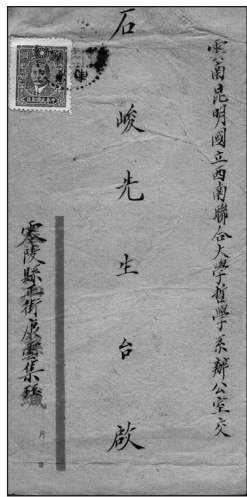 雲南昆明國立西南聯合大學哲學系辦公室交
石峻先生台啟
零陵縣正街康雲集
月 日